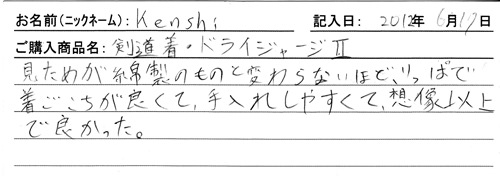 お名前(ニックネーム): Kenshi 記入日: 2012年 6月17日
ご購入商品名: 剣道着・ドライジャージⅡ
見ためが綿製のものと変わらないほどりっぱで
着ごこちが良くて、手入れしやすくて、想像以上
で良かった。